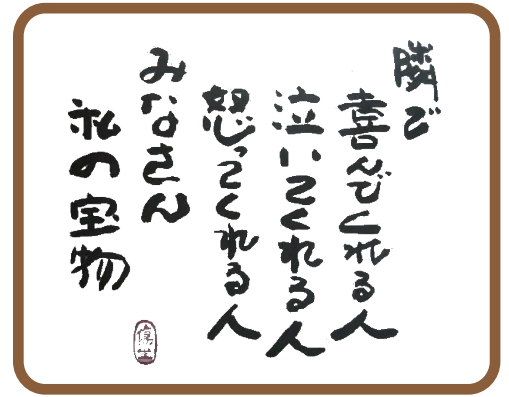 隣で
喜んでくれる人
泣いてくれる人
怒ってくれる人
みなさん
私の宝物